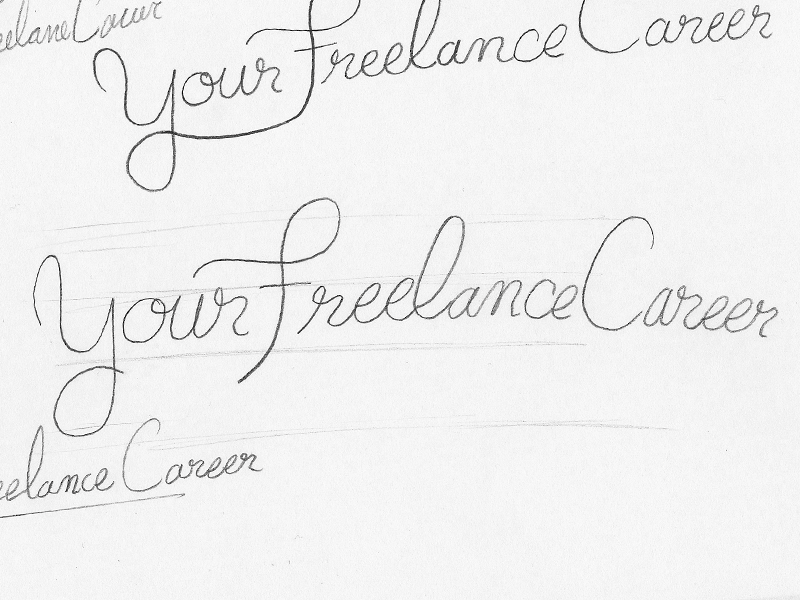 Your Freelance Career
Your Freelance Career
elance Career